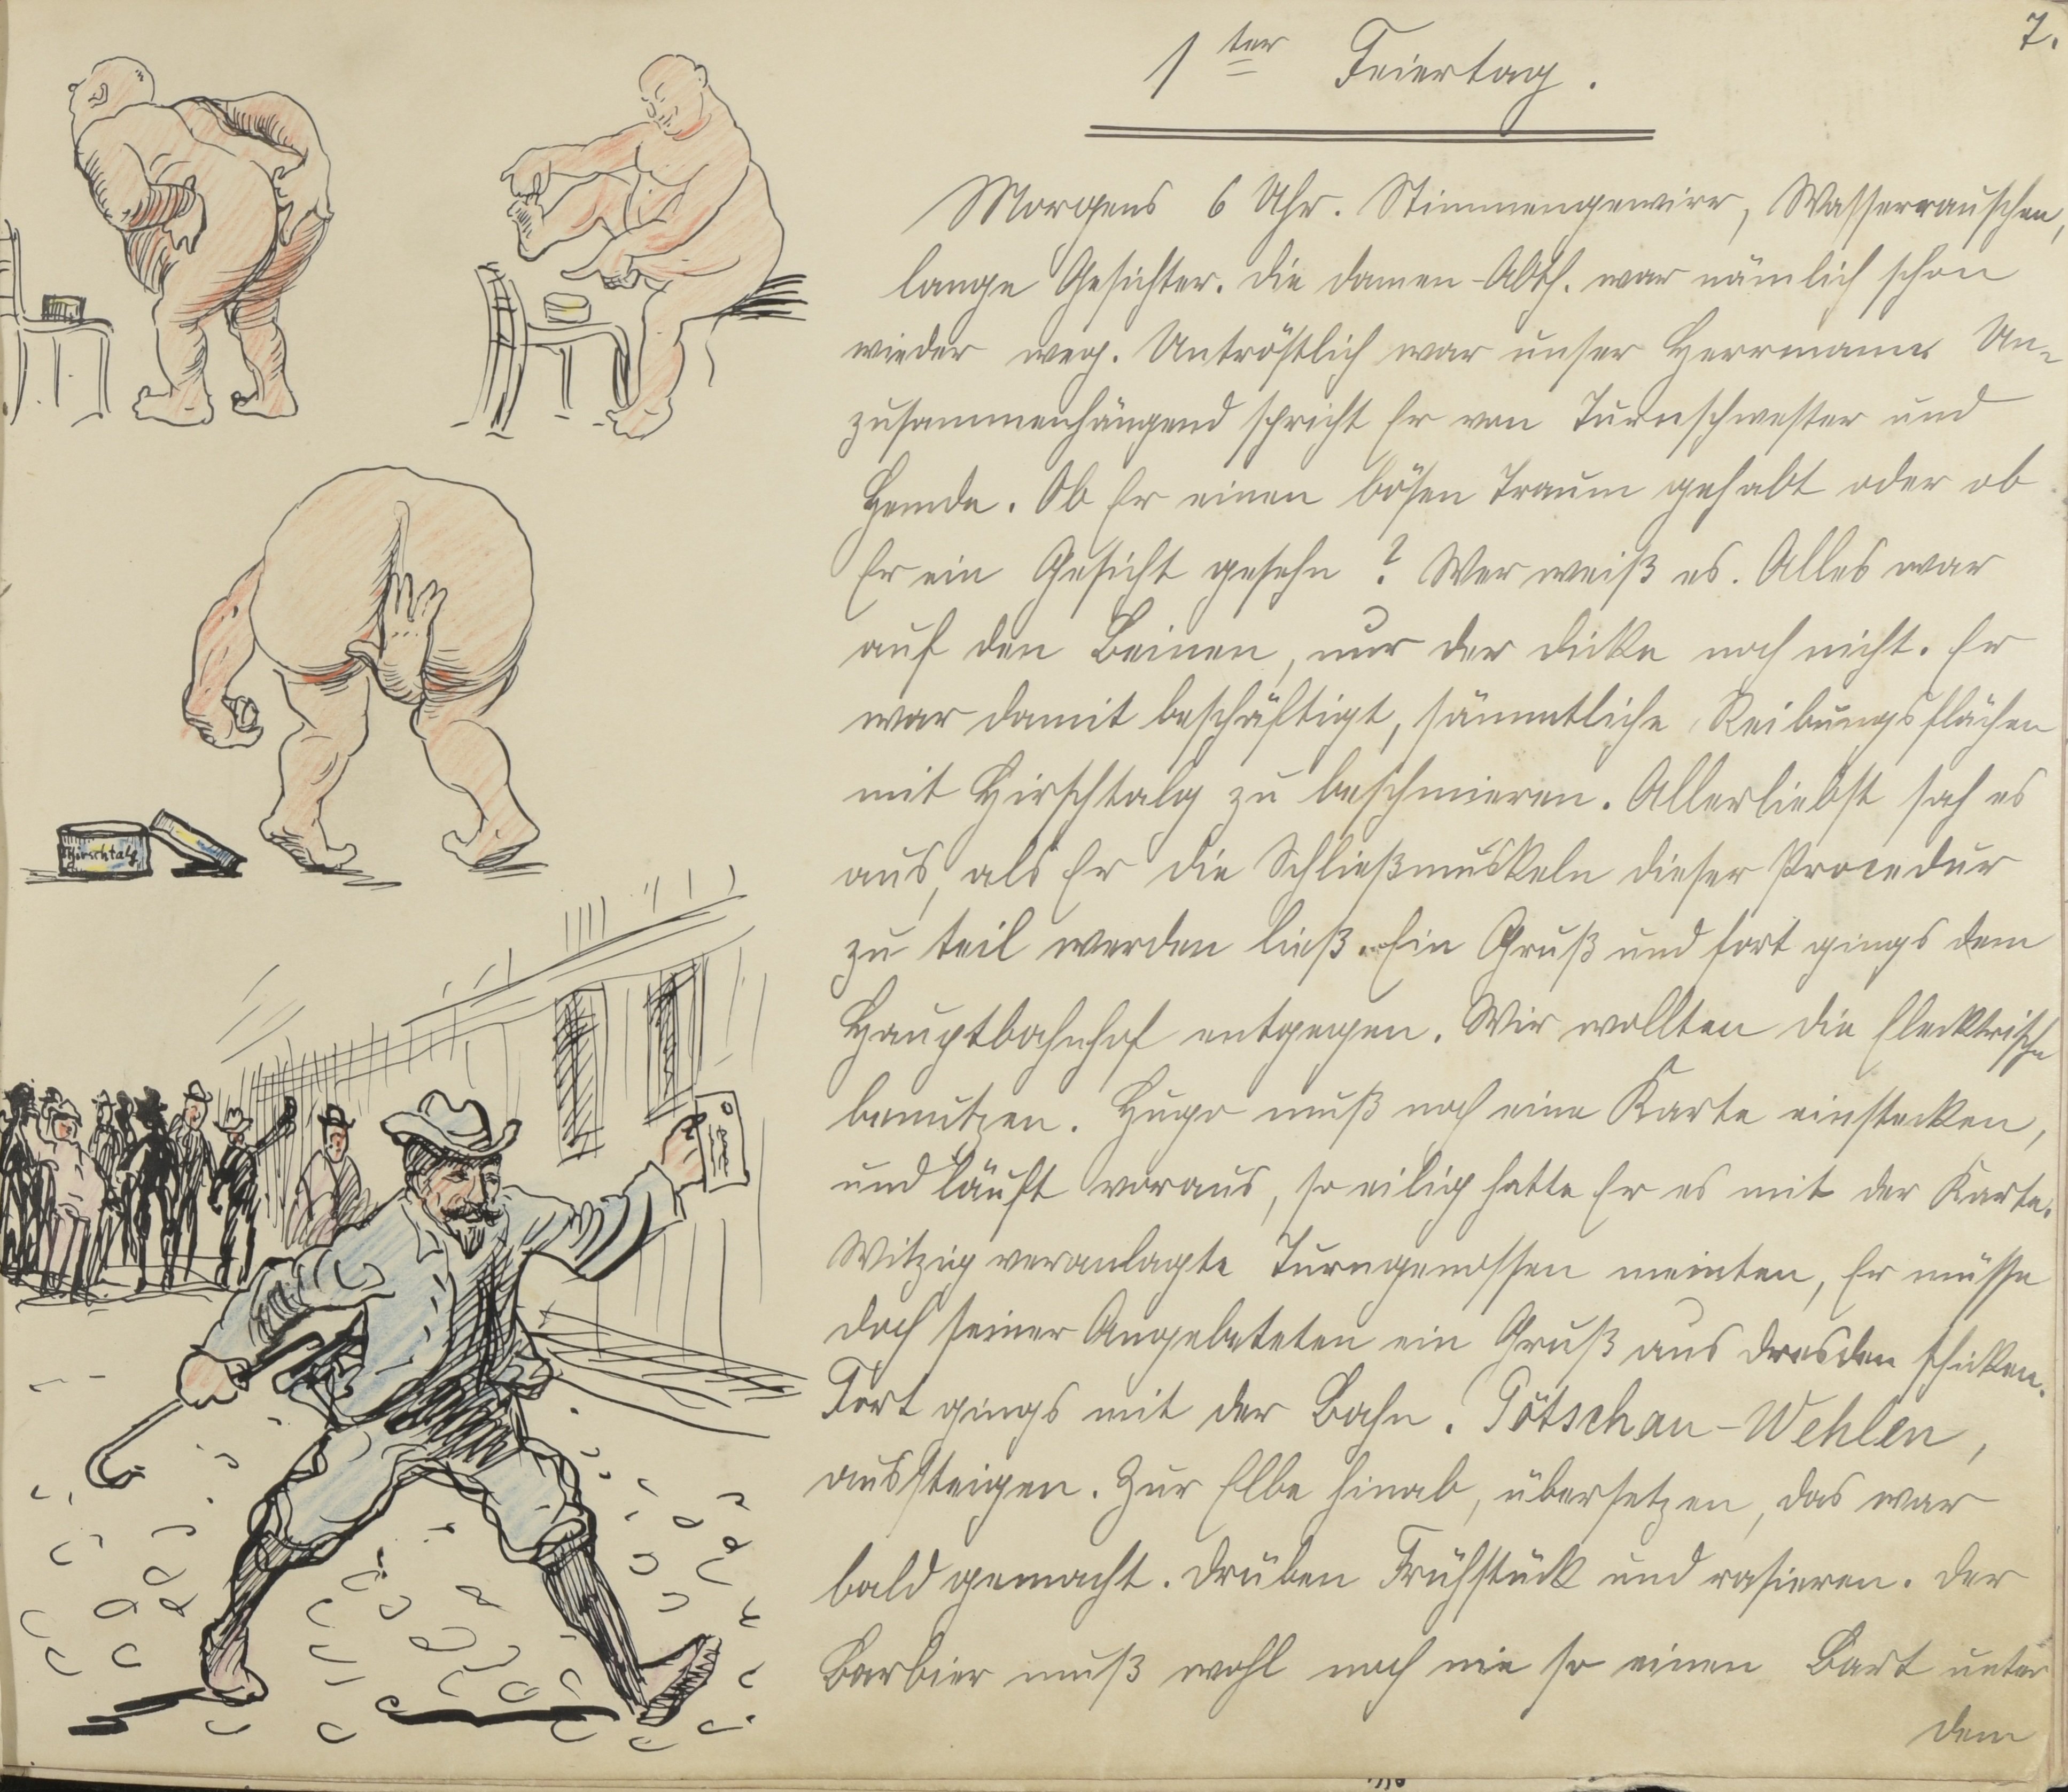 7.
1ter Feiertag.
Morgens 6 Uhr. Stimmengewirr, Wasserrauschen,
lange Gesichter. Die Damen-Abth. war nämlich schon
wieder weg. Untröstlich war unser Herrmann. Un-
zusammenhängend spricht Er von Turnschwester und
Hemde. Ob Er einen bösen Traum gehabt oder ob
Er ein Gesicht gesehn? Wer weiß es. Alles war
auf den Beinen, nur der Dicke noch nicht. Er
war damit beschäftigt, sämmtliche Reibungsflächen
mit Hirschtalg zu beschmieren. Allerliebst sah es
aus, als Er die Schließmuskeln dieser Procedur
zu teil werden ließ. Ein Gruß und fort gings dem
Hauptbahnhof entgegen. Wir wollten die Elecktrische
benutzen. Hugo muß noch eine Karte einstecken,
und läuft voraus, so eilig hatte Er es mit der Karte.
Witzig veranlagte Turngenossen meinten, Er müsse
doch seiner Angebeteten ein Gruß aus Dresden schicken.
Fort gings mit der Bahn. Pötschau-Wehlen,
aussteigen. Zur Elbe hinab, übersetzen, das war
bald gemacht. Drüben Frühstück und rasieren. Der
Barbier muß wohl noch nie so einen Bart unter
dem
Hirschtalg